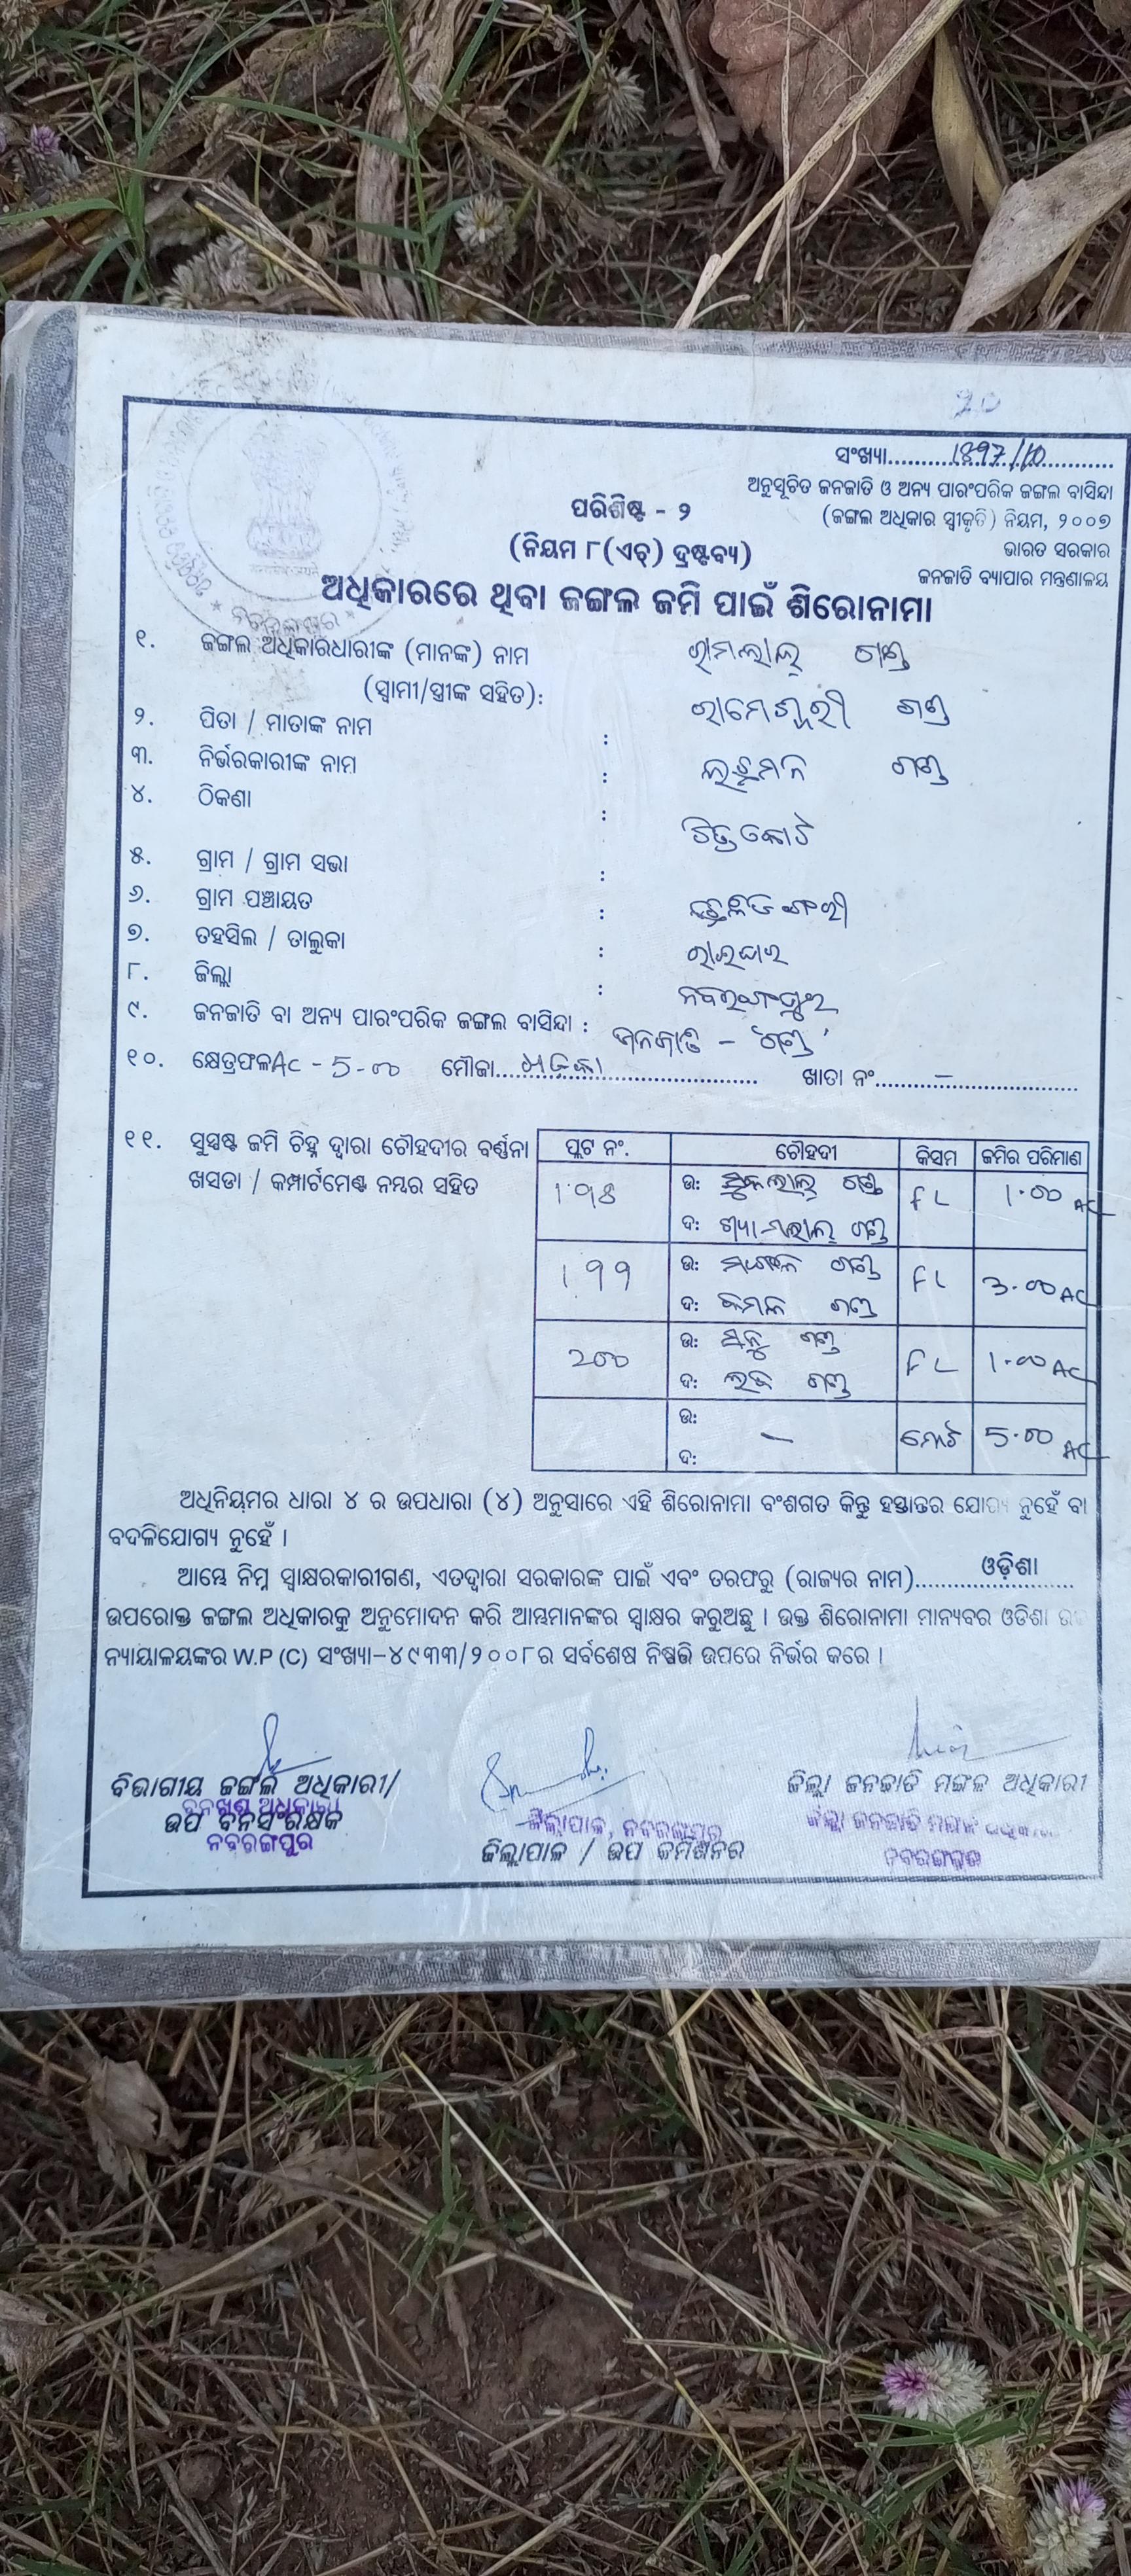 ୨୦
ସଂଖ୍ୟା........1897/10........
ଅନୁସୂଚିତ ଜନଜାତି ଓ ଅନ୍ୟ ପାରଂପରିକ ଜଙ୍ଗଲ ବାସିନ୍ଦା
(ଜଙ୍ଗଲ ଅଧିକାର ସ୍ୱୀକୃତି) ନିୟମ, ୨୦୦୭
ଭାରତ ସରକାର
ଜନଜାତି ବ୍ୟାପାର ମନ୍ତ୍ରଣାଳୟ
ପରିଶିଷ୍ଟ - ୨
(ନିୟମ ୮(ଏଚ୍) ଦ୍ରଷ୍ଟବ୍ୟ)
ଅଧିକାରରେ ଥିବା ଜଙ୍ଗଲ ଜମି ପାଇଁ ଶିରୋନାମା
୧. ଜଙ୍ଗଲ ଅଧିକାରଧାରୀଙ୍କ (ମାନଙ୍କ) ନାମ ରାମଲାଲ୍ ଗଣ୍ଡ
(ସ୍ୱାମୀ/ସ୍ତ୍ରୀଙ୍କ ସହିତ): ରାମେଶ୍ୱରୀ ଗଣ୍ଡ
୨. ପିତା / ମାତାଙ୍କ ନାମ : ଲଛମନ ଗଣ୍ଡ
୩. ନିର୍ଭରକାରୀଙ୍କ ନାମ :
୪. ଠିକଣା :
୫. ଗ୍ରାମ / ଗ୍ରାମ ସଭା :
୬. ଗ୍ରାମ ପଞ୍ଚାୟତ :
୭. ତହସିଲ / ତାଲୁକା : ରାଇଘର
୮. ଜିଲ୍ଲା : ନବରଙ୍ଗପୁର
୯. ଜନଜାତି ବା ଅନ୍ୟ ପାରଂପରିକ ଜଙ୍ଗଲ ବାସିନ୍ଦା : ଜନଜାତି - 'ଗଣ୍ଡ'
୧୦. କ୍ଷେତ୍ରଫଳ AC - 5-00 ମୌଜା........ ଖାତା ନଂ........–........
୧୧. ସୁସ୍ପଷ୍ଟ ଜମି ଚିହ୍ନ ଦ୍ୱାରା ଚୌହଦୀର ବର୍ଣ୍ଣନା
ଖସଡା / କମ୍ପାର୍ଟମେଣ୍ଟ ନମ୍ବର ସହିତ
ପ୍ଲଟ ନଂ. ଚୌହଦୀ କିସମ ଜମିର ପରିମାଣ
198 ଉ: ସୁକଲାଲ୍ ଗଣ୍ଡ FL 1.00 AC
ଦ: ଗଣ୍ଡ
199 ଉ: ଗଣ୍ଡ FL 3.00 AC
ଦ: କମଳ ଗଣ୍ଡ
200 ଉ: ଗଣ୍ଡ FL 1.00 AC
ଦ: ଗଣ୍ଡ
ଉ: – ମୋଟ 5.00 AC
ଦ:
ଅଧିନିୟମର ଧାରା ୪ ର ଉପଧାରା (୪) ଅନୁସାରେ ଏହି ଶିରୋନାମା ବଂଶଗତ କିନ୍ତୁ ହସ୍ତାନ୍ତର ଯୋଗ୍ୟ ନୁହେଁ ବା
ବଦଳିଯୋଗ୍ୟ ନୁହେଁ ।
ଆମ୍ଭେ ନିମ୍ନ ସ୍ୱାକ୍ଷରକାରୀଗଣ, ଏତଦ୍ୱାରା ସରକାରଙ୍କ ପାଇଁ ଏବଂ ତରଫରୁ (ରାଜ୍ୟର ନାମ)........ଓଡ଼ିଶା........
ଉପରୋକ୍ତ ଜଙ୍ଗଲ ଅଧିକାରକୁ ଅନୁମୋଦନ କରି ଆମ୍ଭମାନଙ୍କର ସ୍ୱାକ୍ଷର କରୁଅଛୁ । ଉକ୍ତ ଶିରୋନାମା ମାନ୍ୟବର ଓଡିଶା
ନ୍ୟାୟାଳୟଙ୍କର W.P (C) ସଂଖ୍ୟା-୪୯୩୩/୨୦୦୮ର ସର୍ବଶେଷ ନିଷ୍ପତ୍ତି ଉପରେ ନିର୍ଭର କରେ ।
ବିଭାଗୀୟ ଜଙ୍ଗଲ ଅଧିକାରୀ/
ଉପ ବନସଂରକ୍ଷକ
ବନଖଣ୍ଡ ଅଧିକାରୀ
ନବରଙ୍ଗପୁର
ଜିଲ୍ଲାପାଳ, ନବରଙ୍ଗପୁର
ଜିଲ୍ଲାପାଳ / ଉପ କମିଶନର
ଜିଲ୍ଲା ଜନଜାତି ମଙ୍ଗଳ ଅଧିକାରୀ
ଜିଲ୍ଲା ଜନଜାତି ମଙ୍ଗଳ ଅଧିକାରୀ
ନବରଙ୍ଗପୁର